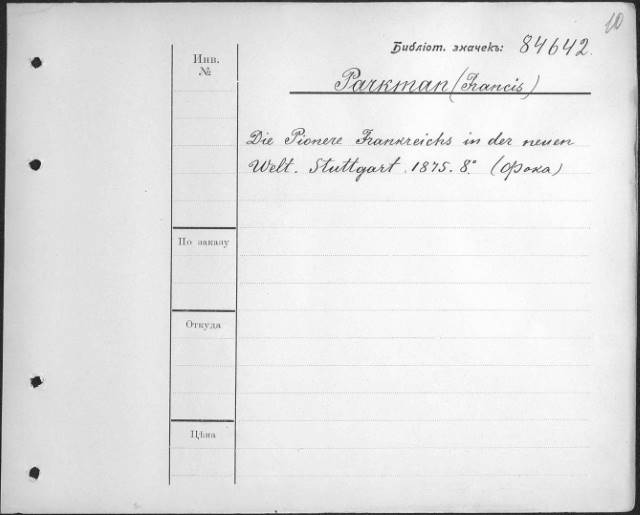 10
Библіот. значекъ: 84642.
Инв. №
Parkman (Francis)
Die Pionere Frankreichs in der neuen
Welt. Stuttgart. 1875. 8° (Фока)
По заказу
Откуда
Цѣна